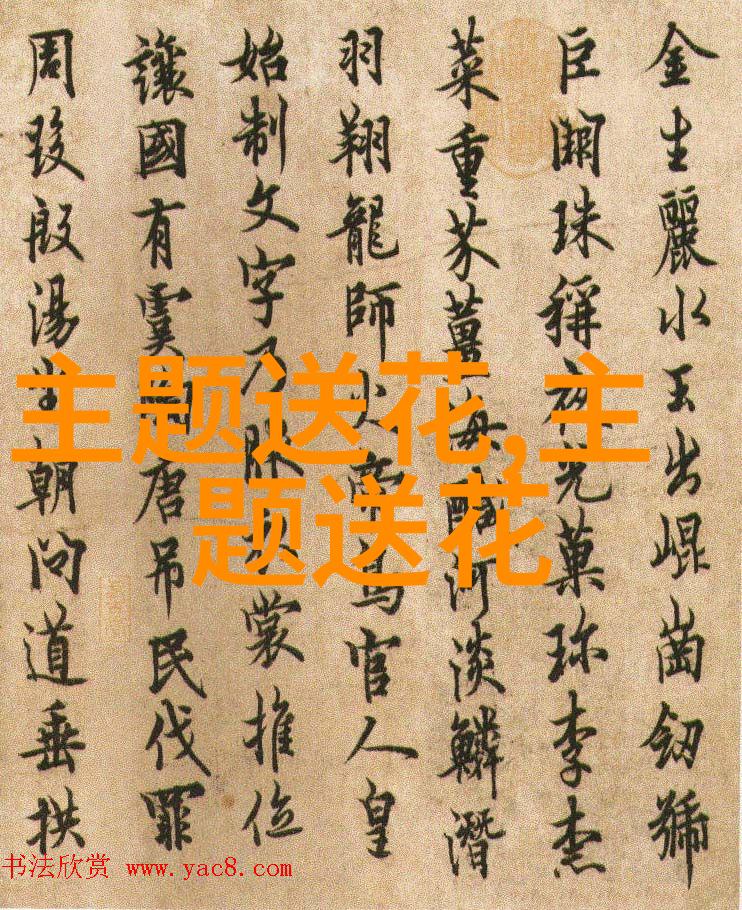 金生麗水玉出崐崗劒號
巨闕珠稱夜光菓珎李柰
菜重芥薑海鹹河淡鱗潛
羽翔龍師火帝鳥官人皇
始制文字乃服衣裳推位
讓國有虞陶唐吊民伐罪
周發殷湯坐朝問道垂拱
主题送花,主
题送花
书法欣赏 www.yac8.com